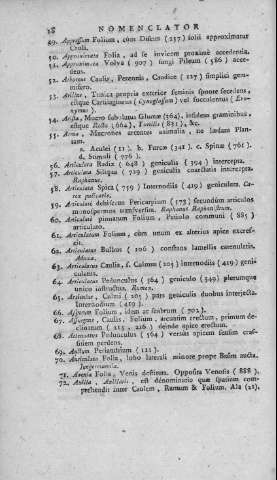 18 NOMENCLATOR
49. Appressum Folium, cum Discus (237) folii approximatur
Cauli.
50. Approximata Folia, ad se invicem proxime accedentia.
51. Approximata Volva (907) fungi Pileum (586) acce-
dens.
52. Arboreus Caulis, Perennis, Caudice (127) simplici gemi-
nifero.
53. Arillus, Tunica propria exterior seminis sponte secedens,
estque Cartilagineus (Cynoglossum) vel succulentus (Evo-
nymus).
54. Arista, Mucro subulatus Glumæ (364), insidens graminibus,
estque Recta (664), Tortilis (831), &c.
55. Arma, Mucrones arcentes animalia, ne lædant Plan-
tam.
a. Aculei (11). b. Furcæ (342). c. Spinæ (761).
d. Stimuli (776).
56. Articulata Radix (648) geniculis (394) intercepta.
57. Articulata Siliqua (729) geniculis coarctatis intercepta.
Raphanus.
58. Articulata Spica (759) Internodiis (419) geniculata. Ca-
rex
59. Articulati dehiscens Pericarpium (173) secundum articulos
monospermos transversim. Raphanus Raphanistrum.
60. Articulati pinnatum Folium, Petiolo communi (585)
articulato.
61. Articulatum Folium, cum unum ex alterius apice excres-
cit.
62. Articulatus Bulbus (106) constans lamellis catenulatis.
63. Articulatus Caulis, f. Culmus (205) internodiis (419) geni-
culatus.
64. Articulatus Pedunculus (564) geniculo (349) plerumque
unico instructus.
65. Articulus, Culmi (205) pars geniculis duobus interjecta.
Internodium (419).
66. Asperum Folium, idem ac scabrum (702).
67. Assurgens, Caulis, Folium, arcuatim erectum, primum de-
clinatum (215, 216) deinde apice erectum.
68. Attenuatus Pedunculus (564) versus apicem sensim cras-
sitiem perdens.
69. Auctum Perianthium (121).
70. Auriculata Folia, lobo laterali minore prope Basim aucta.
Jungermannia.
71. Avenia Folia, Venis destituta. Opposita Venosis (888).
72. Axilla, est denominatio quæ spatium com-
prehendit inter Caulem, Ramum & Folium. Ala (21).